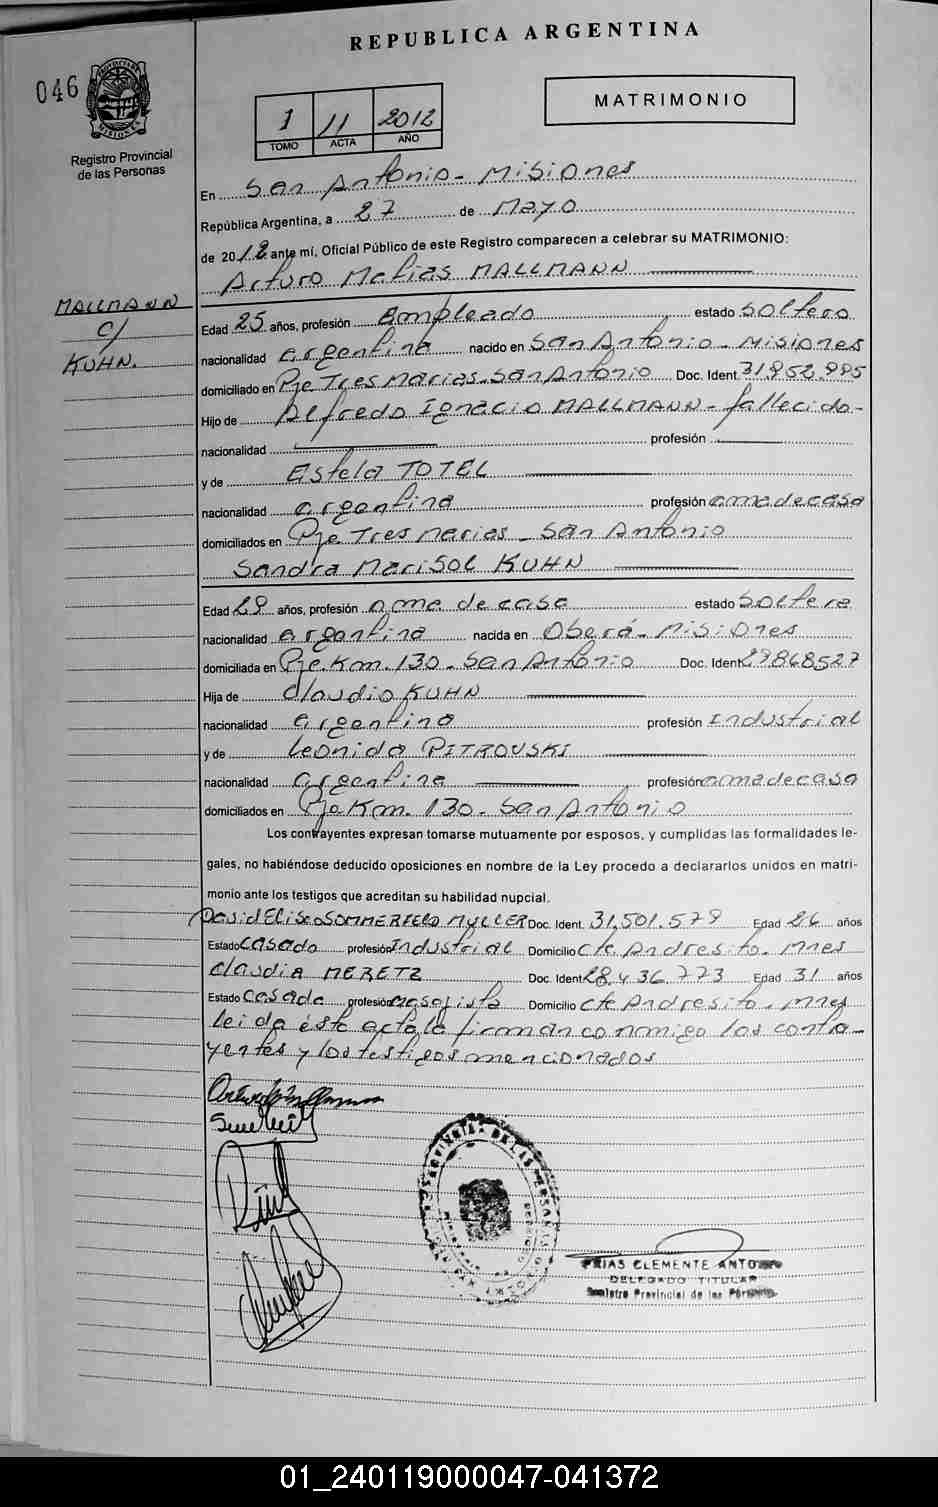 REPUBLICA ARGENTINA
046
PROVINCIA DE MISIONES
Registro Provincial
de las Personas
1 11 2012
TOMO ACTA AÑO
MATRIMONIO
En San Antonio - Misiones
República Argentina, a 27 de Mayo
de 2012 ante mí, Oficial Público de este Registro comparecen a celebrar su MATRIMONIO:
Arturo Matias MALLMANN
MALLMANN
C/
KUHN.
Edad 25 años, profesión Empleado estado Soltero
nacionalidad argentina nacido en San Antonio - Misiones
domiciliado en Pje Tres Marias - San Antonio Doc. Ident. 31.952.995
Hijo de Alfredo Ignacio MALLMANN - fallecido -
nacionalidad profesión
y de Estela TOTEL
nacionalidad argentina profesión ama de casa
domiciliados en Pje. Tres Marias - San Antonio
Sandra Marisol KUHN
Edad 29 años, profesión ama de casa estado Soltera
nacionalidad argentina nacida en Oberá - Misiones
domiciliada en Pje. Km. 130 - San Antonio Doc. Ident. 29868527
Hija de Claudio KUHN
nacionalidad argentina profesión Industrial
y de Leonida PITROVSKI
nacionalidad argentina profesión ama de casa
domiciliados en Pje Km. 130 - San Antonio
Los contrayentes expresan tomarse mutuamente por esposos, y cumplidas las formalidades le-
gales, no habiéndose deducido oposiciones en nombre de la Ley procedo a declararlos unidos en matri-
monio ante los testigos que acreditan su habilidad nupcial.
David Eliseo SOMMERFELD MULLER Doc. Ident. 31.501.579 Edad 26 años
Estado Casado profesión Industrial Domicilio Cte Andresito - Mnes
Claudia MERETZ Doc. Ident. 28.436.773 Edad 31 años
Estado Casada profesión masajista Domicilio Cte Andresito - Mnes
leida ésta acta la firman conmigo los contra-
yentes y los testigos mencionados
FRIAS CLEMENTE ANTONIO
DELEGADO TITULAR
Registro Provincial de las Personas
01_240119000047-041372